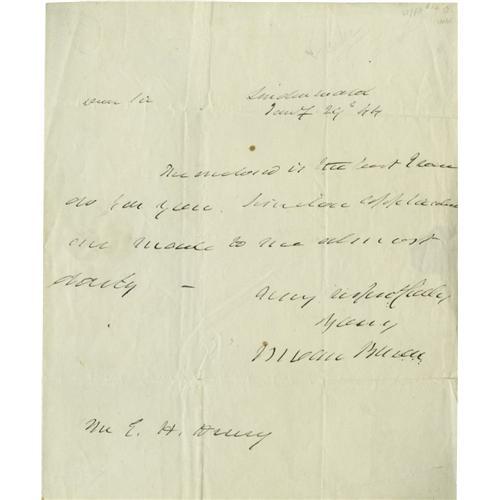 Dear Sir
Lindenwald
Jany 29th 44
The enclosed is the best I can
do for you. Similar applications
are made to me almost
daily –
Very respectfully
Yours
M Van Buren
Mr E. H. Henry